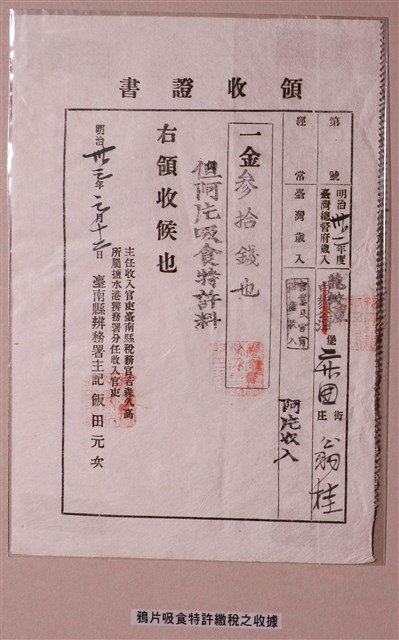 領收證書
第 號
明治卅一年度
臺灣總督府歲入
堡
街
庄
翁桂
經常
臺灣歲入
阿片收入
一金參拾錢也
但阿片吸食特許料
右領收候也
明治卅二年 月十二日
主任收入官吏臺南縣稅務官若森久高
所屬鹽水港辨務署分任收入官吏
臺南縣辨務署主記飯田元次
鴉片吸食特許繳稅之收據